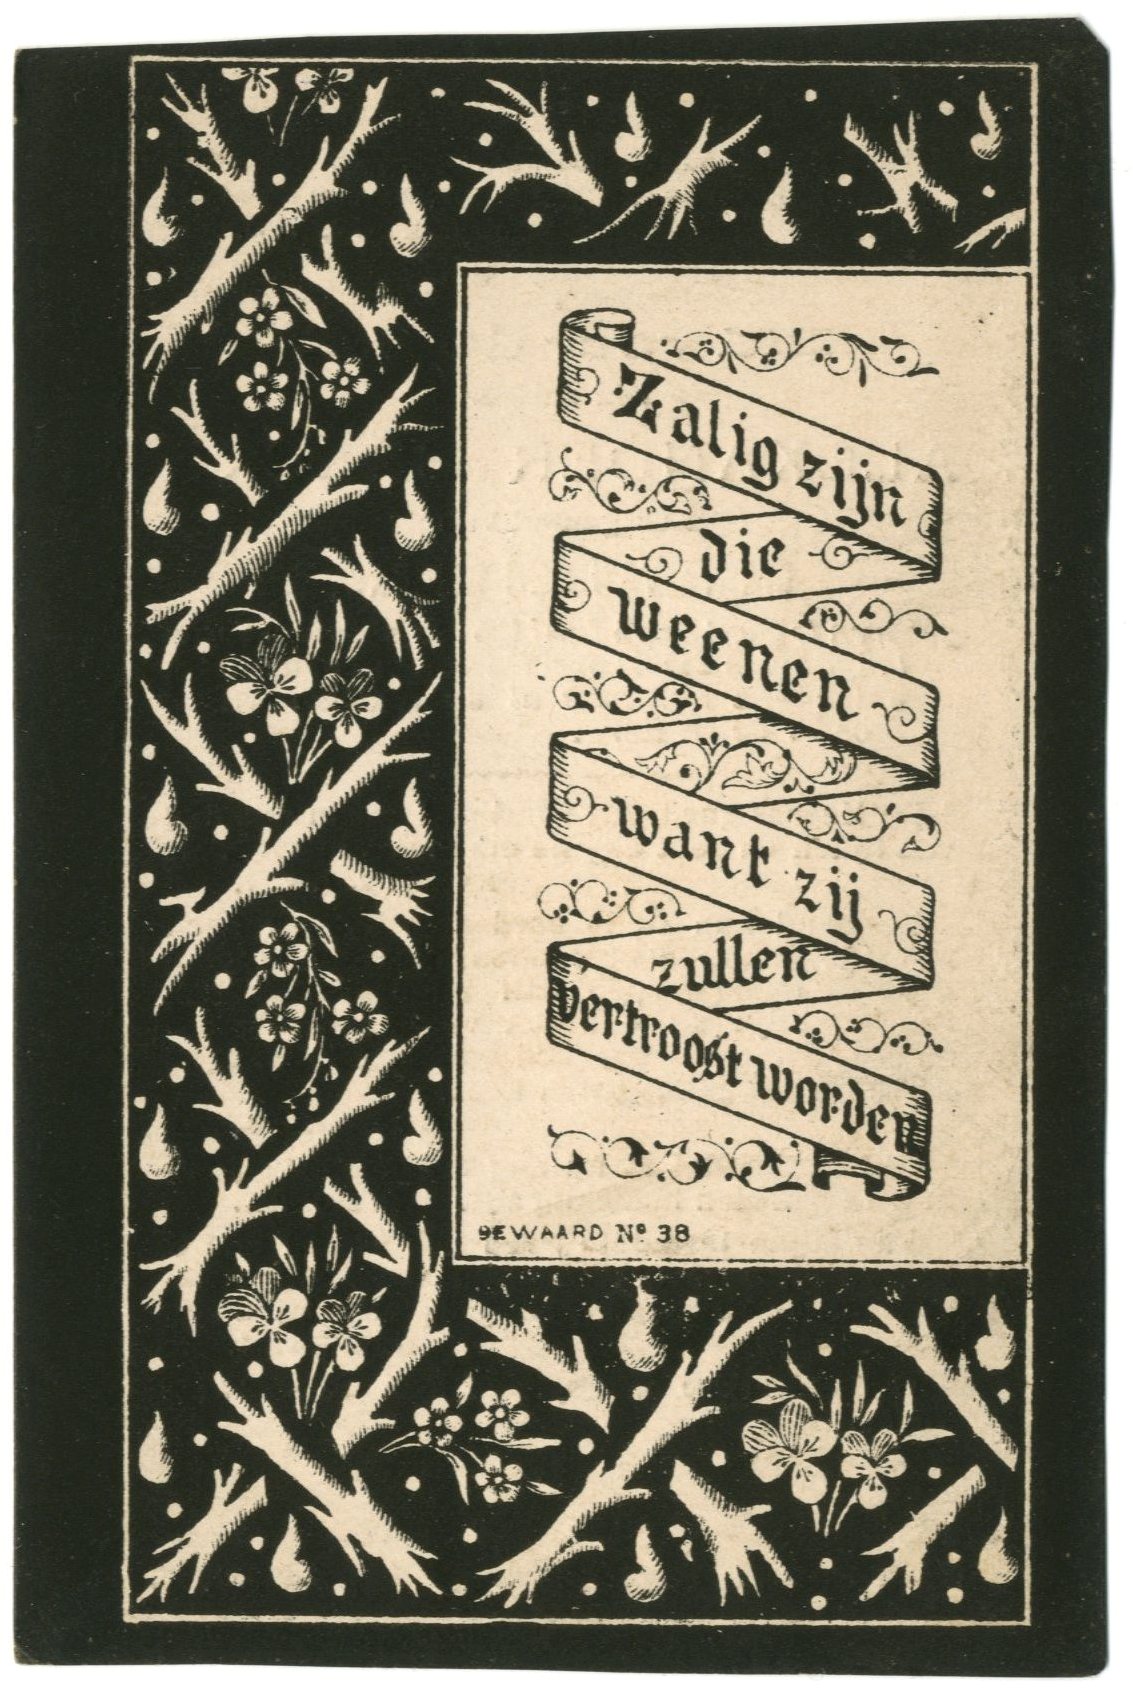 Zalig zijn
die
weenen
want zij
zullen
vertroost worden
BEWAARD Nº 38